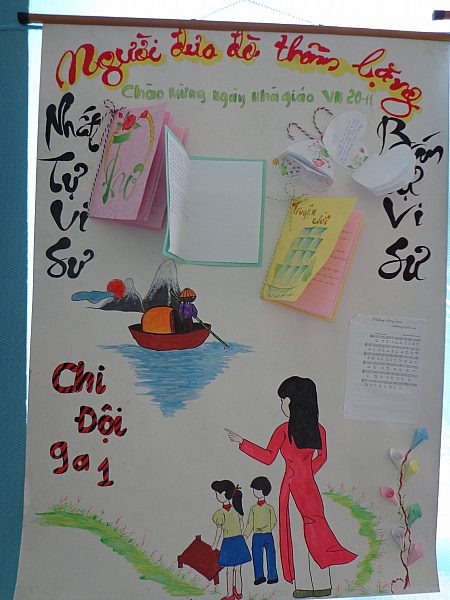 Người đưa đò thầm lặng
Chào mừng ngày nhà giáo VN 20-11
Nhất
Tự
Vi
Sư
Bán
Tự
Vi
Sư
Thơ
Truyện
cười
Chi
Đội
9a1